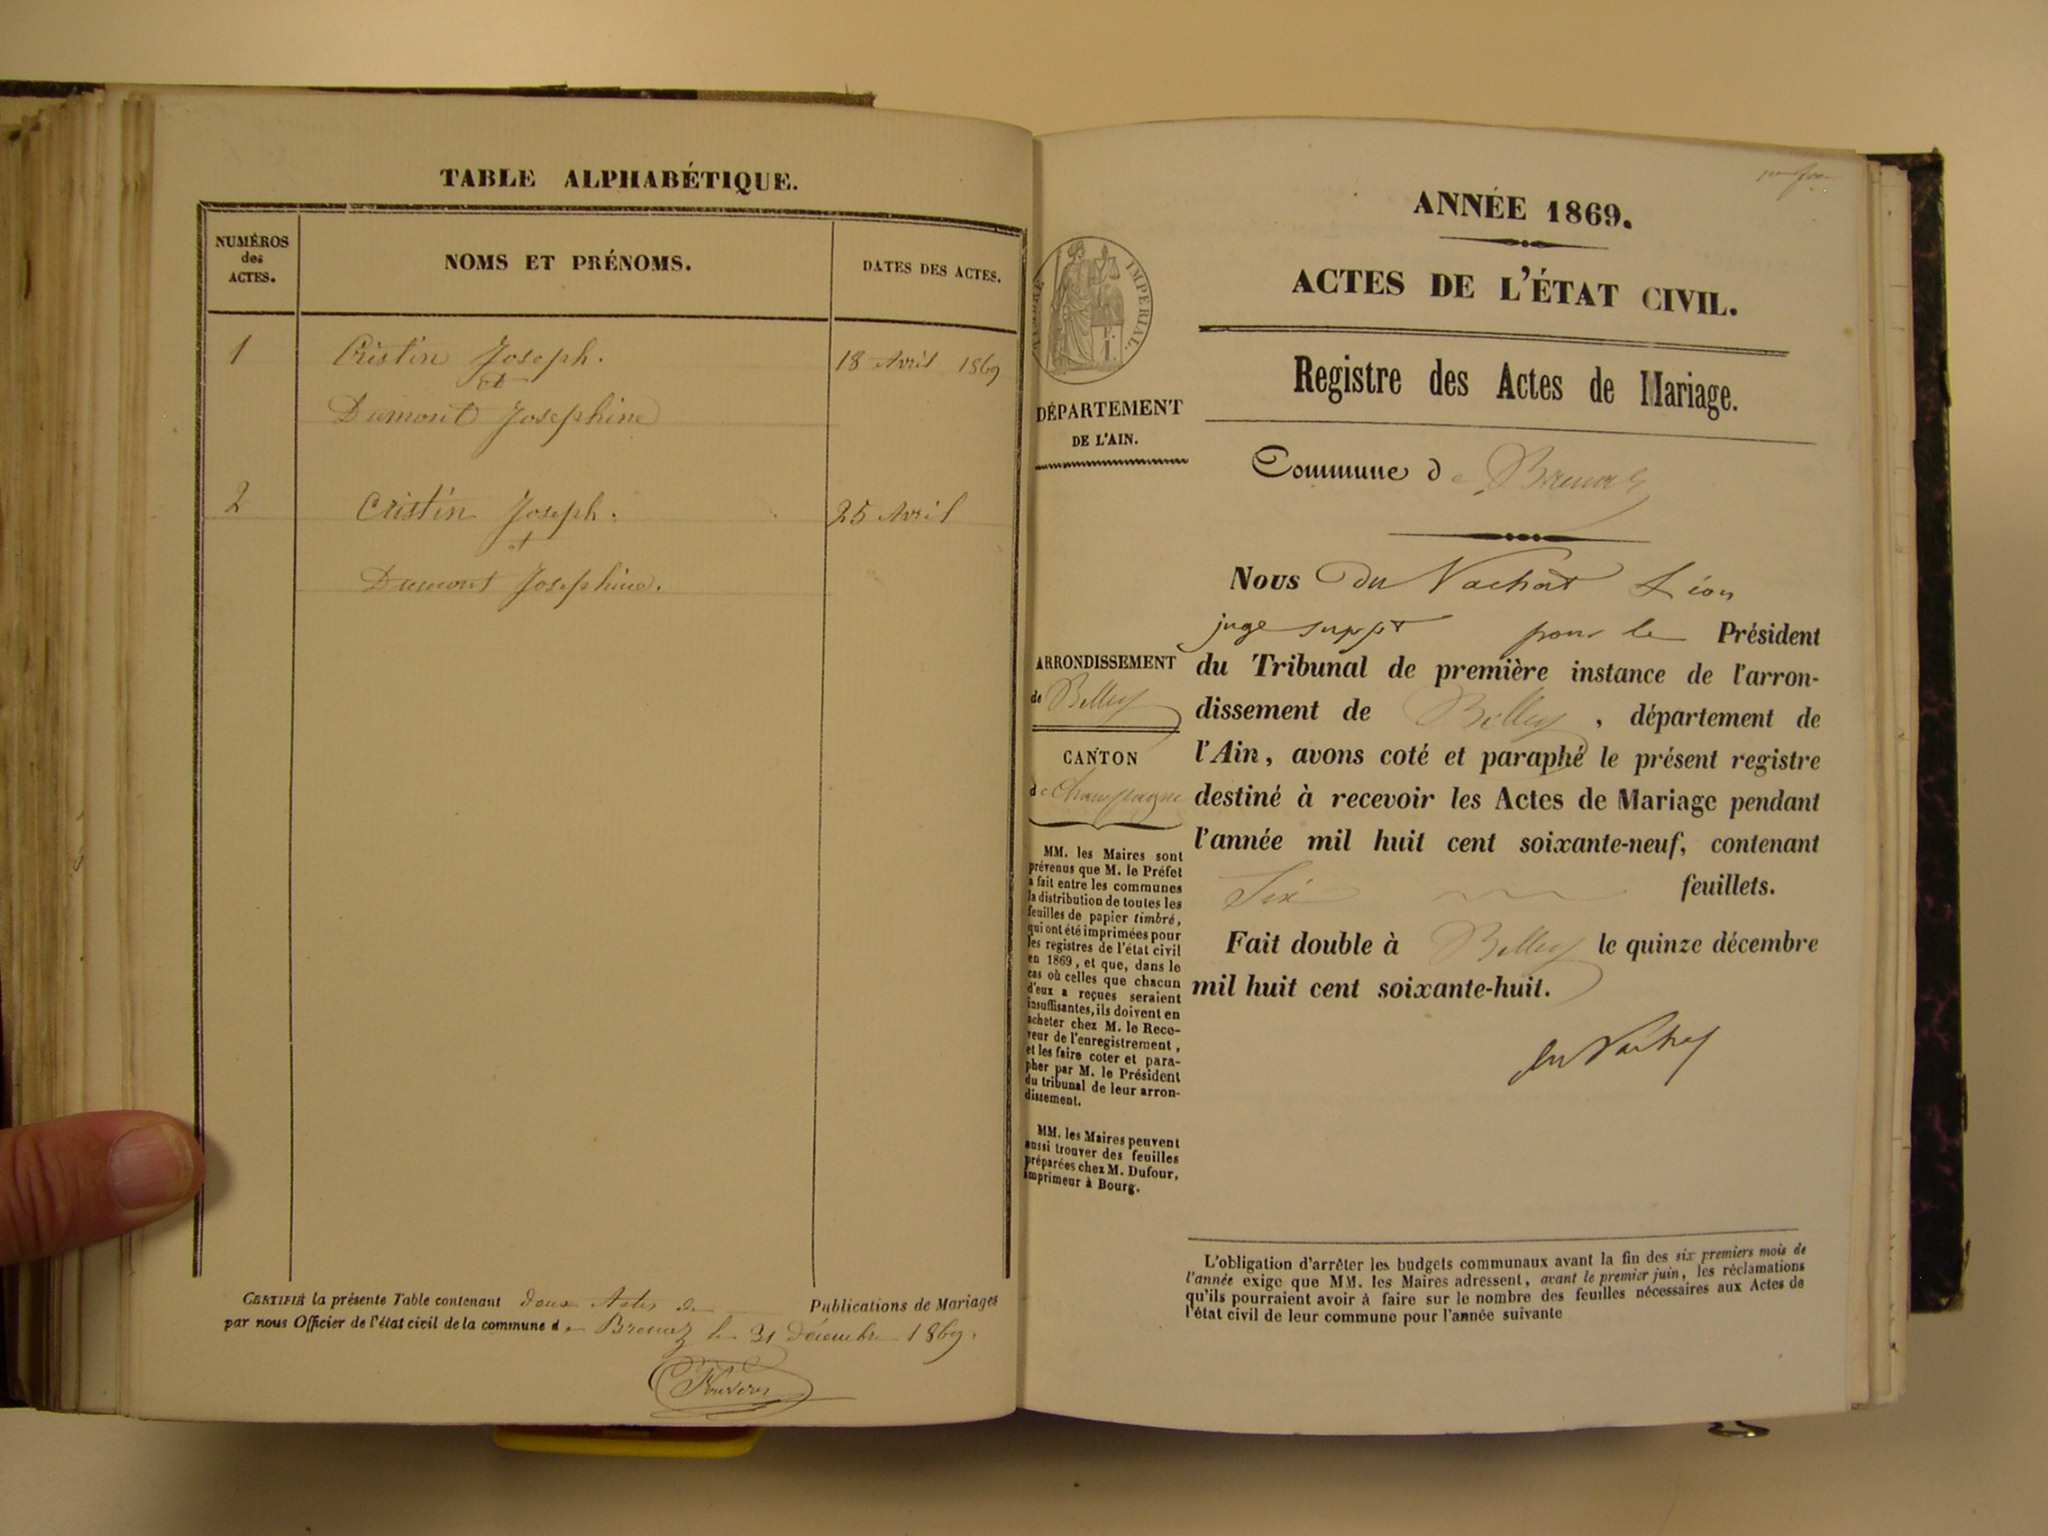 TABLE ALPHABÉTIQUE.
NUMÉROS
des
ACTES.
NOMS ET PRÉNOMS.
DATES DES ACTES.
1
Cristin Joseph.
18 Avril 1869
et
Dumont Josephine
2
Cristin Joseph.
25 Avril
et
Dumont Josephine.
CERTIFIÉ la présente Table contenant deux Actes de Publications de Mariages
par nous Officier de l'état civil de la commune de Brenaz le 31 Décembre 1869.
ANNÉE 1869.
ACTES DE L'ÉTAT CIVIL.
Registre des Actes de Mariage.
IMPERIAL.
DÉPARTEMENT
DE L'AIN.
Commune de Brenaz
Nous Du Vachat Léon
juge suppt pour le Président
du Tribunal de première instance de l'arron-
dissement de Belley, département de
l'Ain, avons coté et paraphé le présent registre
destiné à recevoir les Actes de Mariage pendant
l'année mil huit cent soixante-neuf, contenant
Six feuillets.
Fait double à Belley le quinze décembre
mil huit cent soixante-huit.
du Vachat
ARRONDISSEMENT
de Belley
CANTON
de Champagne
MM. les Maires sont
prévenus que M. le Préfet
a fait entre les communes
la distribution de toutes les
feuilles de papier timbré,
qui ont été imprimées pour
les registres de l'état civil
en 1869, et que, dans le
cas où celles que chacun
d'eux a reçues seraient
insuffisantes, ils doivent en
acheter chez M. le Rece-
veur de l'enregistrement,
et les faire coter et para-
pher par M. le Président
du tribunal de leur arron-
dissement.
MM. les Maires peuvent
aussi trouver des feuilles
préparées chez M. Dufour,
imprimeur à Bourg.
L'obligation d'arrêter les budgets communaux avant la fin des six premiers mois de
l'année exige que MM. les Maires adressent, avant le premier juin, les réclamations
qu'ils pourraient avoir à faire sur le nombre des feuilles nécessaires aux Actes de
l'état civil de leur commune pour l'année suivante